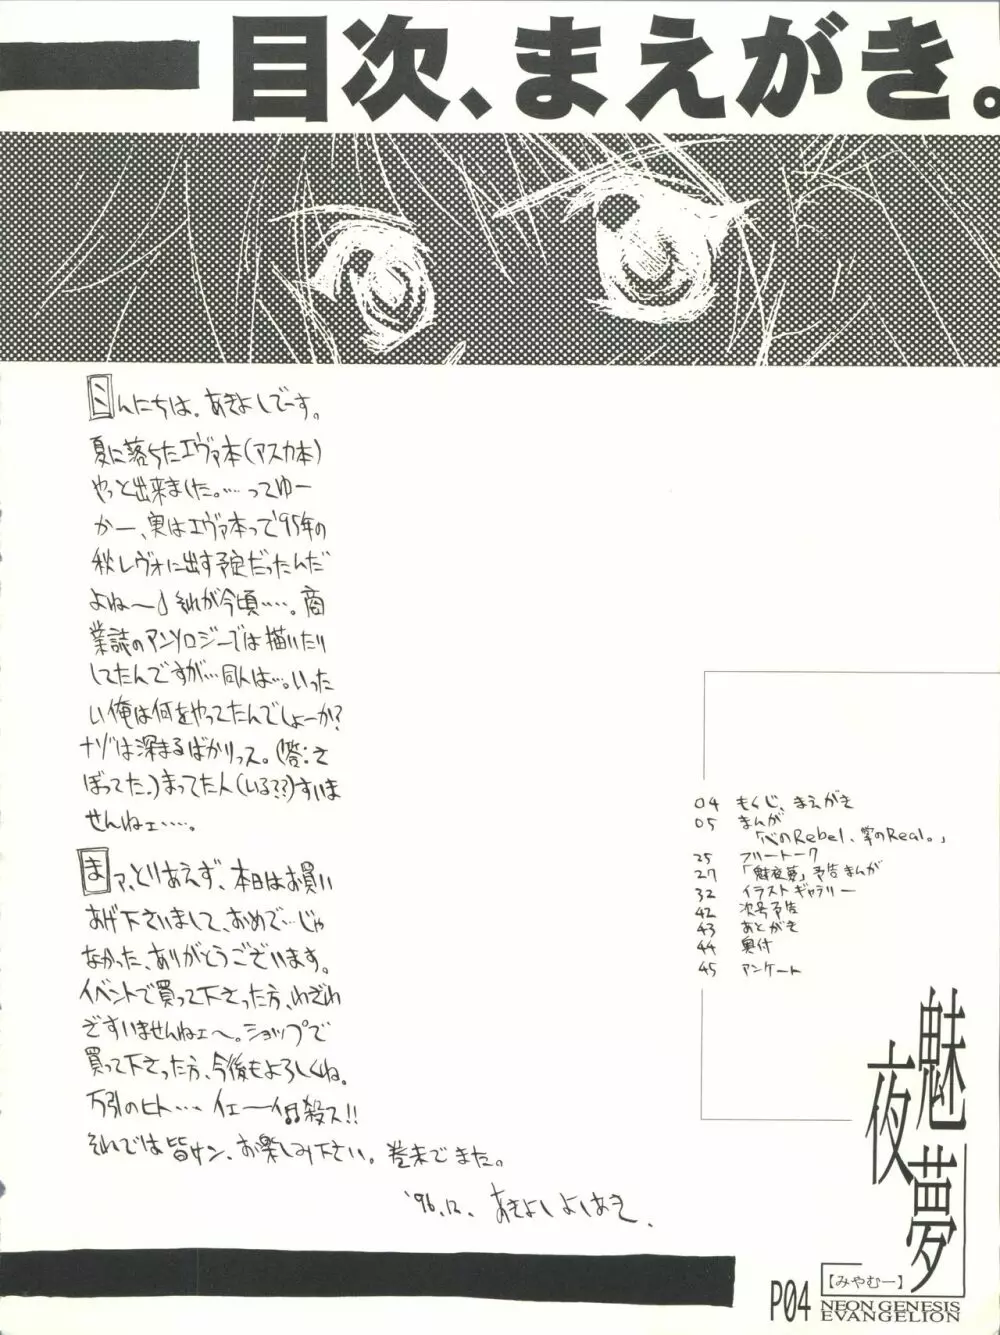 目次、まえがき。
こんにちは。あきよしでーす。
夏に落ちたエヴァ本(アスカ本)
やっと出来ました。……ってゆー
かー、実はエヴァ本って'95年の
秋レヴォに出す予定だったんだ
よね〜♪それが今頃……。商
業誌のアンソロジーでは描いたり
してたんですが…同人は…。いった
い俺は何をやってたんでしょーか?
ナゾは深まるばかりっス。(答:さ
ぼってた。)まってた人(いる??)すいま
せんねェ……。
まァ、とりあえず、本日はお買い
あげ下さいまして、おめで…じゃ
なかった、ありがとうございます。
イベントで買って下さった方、わざわ
ざすいませんねェ〜。ショップで
買って下さった方、今後もよろしくね。
万引のヒト…… イェーイ 殺ス!!
それでは皆サン、お楽しみ下さい。巻末でまた。
'96.12. あきよしよしあき.
04 もくじ、まえがき
05 まんが
「心のRebel、掌のReal。」
25 フリートーク
27 「魅夜夢」予告まんが
32 イラストギャラリー
42 次号予告
43 あとがき
44 奥付
45 アンケート
魅夜夢
【みやむー】
P04 NEON GENESIS
EVANGELION